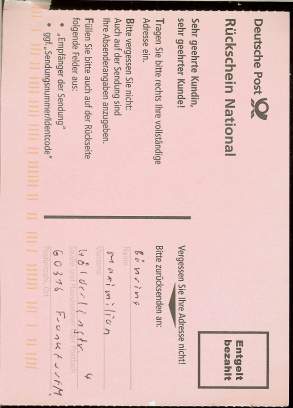 Deutsche Post
Rückschein National
Sehr geehrte Kundin,
sehr geehrter Kunde!
Tragen Sie bitte rechts Ihre vollständige
Adresse ein.
Bitte vergessen Sie nicht:
Auch auf der Sendung sind
Ihre Absenderangaben anzugeben.
Füllen Sie bitte auch auf der Rückseite
folgende Felder aus:
• „Empfänger der Sendung“
• ggf. „Sendungsnummer/Identcode“
Entgelt
bezahlt
Vergessen Sie Ihre Adresse nicht!
Bitte zurücksenden an:
Maximilian
4
60316 Frankfurt M.